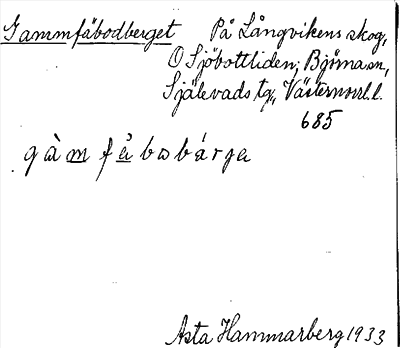 Gammfäbodberget På Långvikens skog,
O Sjöbottliden, Björna sn,
Själevads tg., Västernorrl. l.
685
gàm fäbobárga
Asta Hammarberg 1933